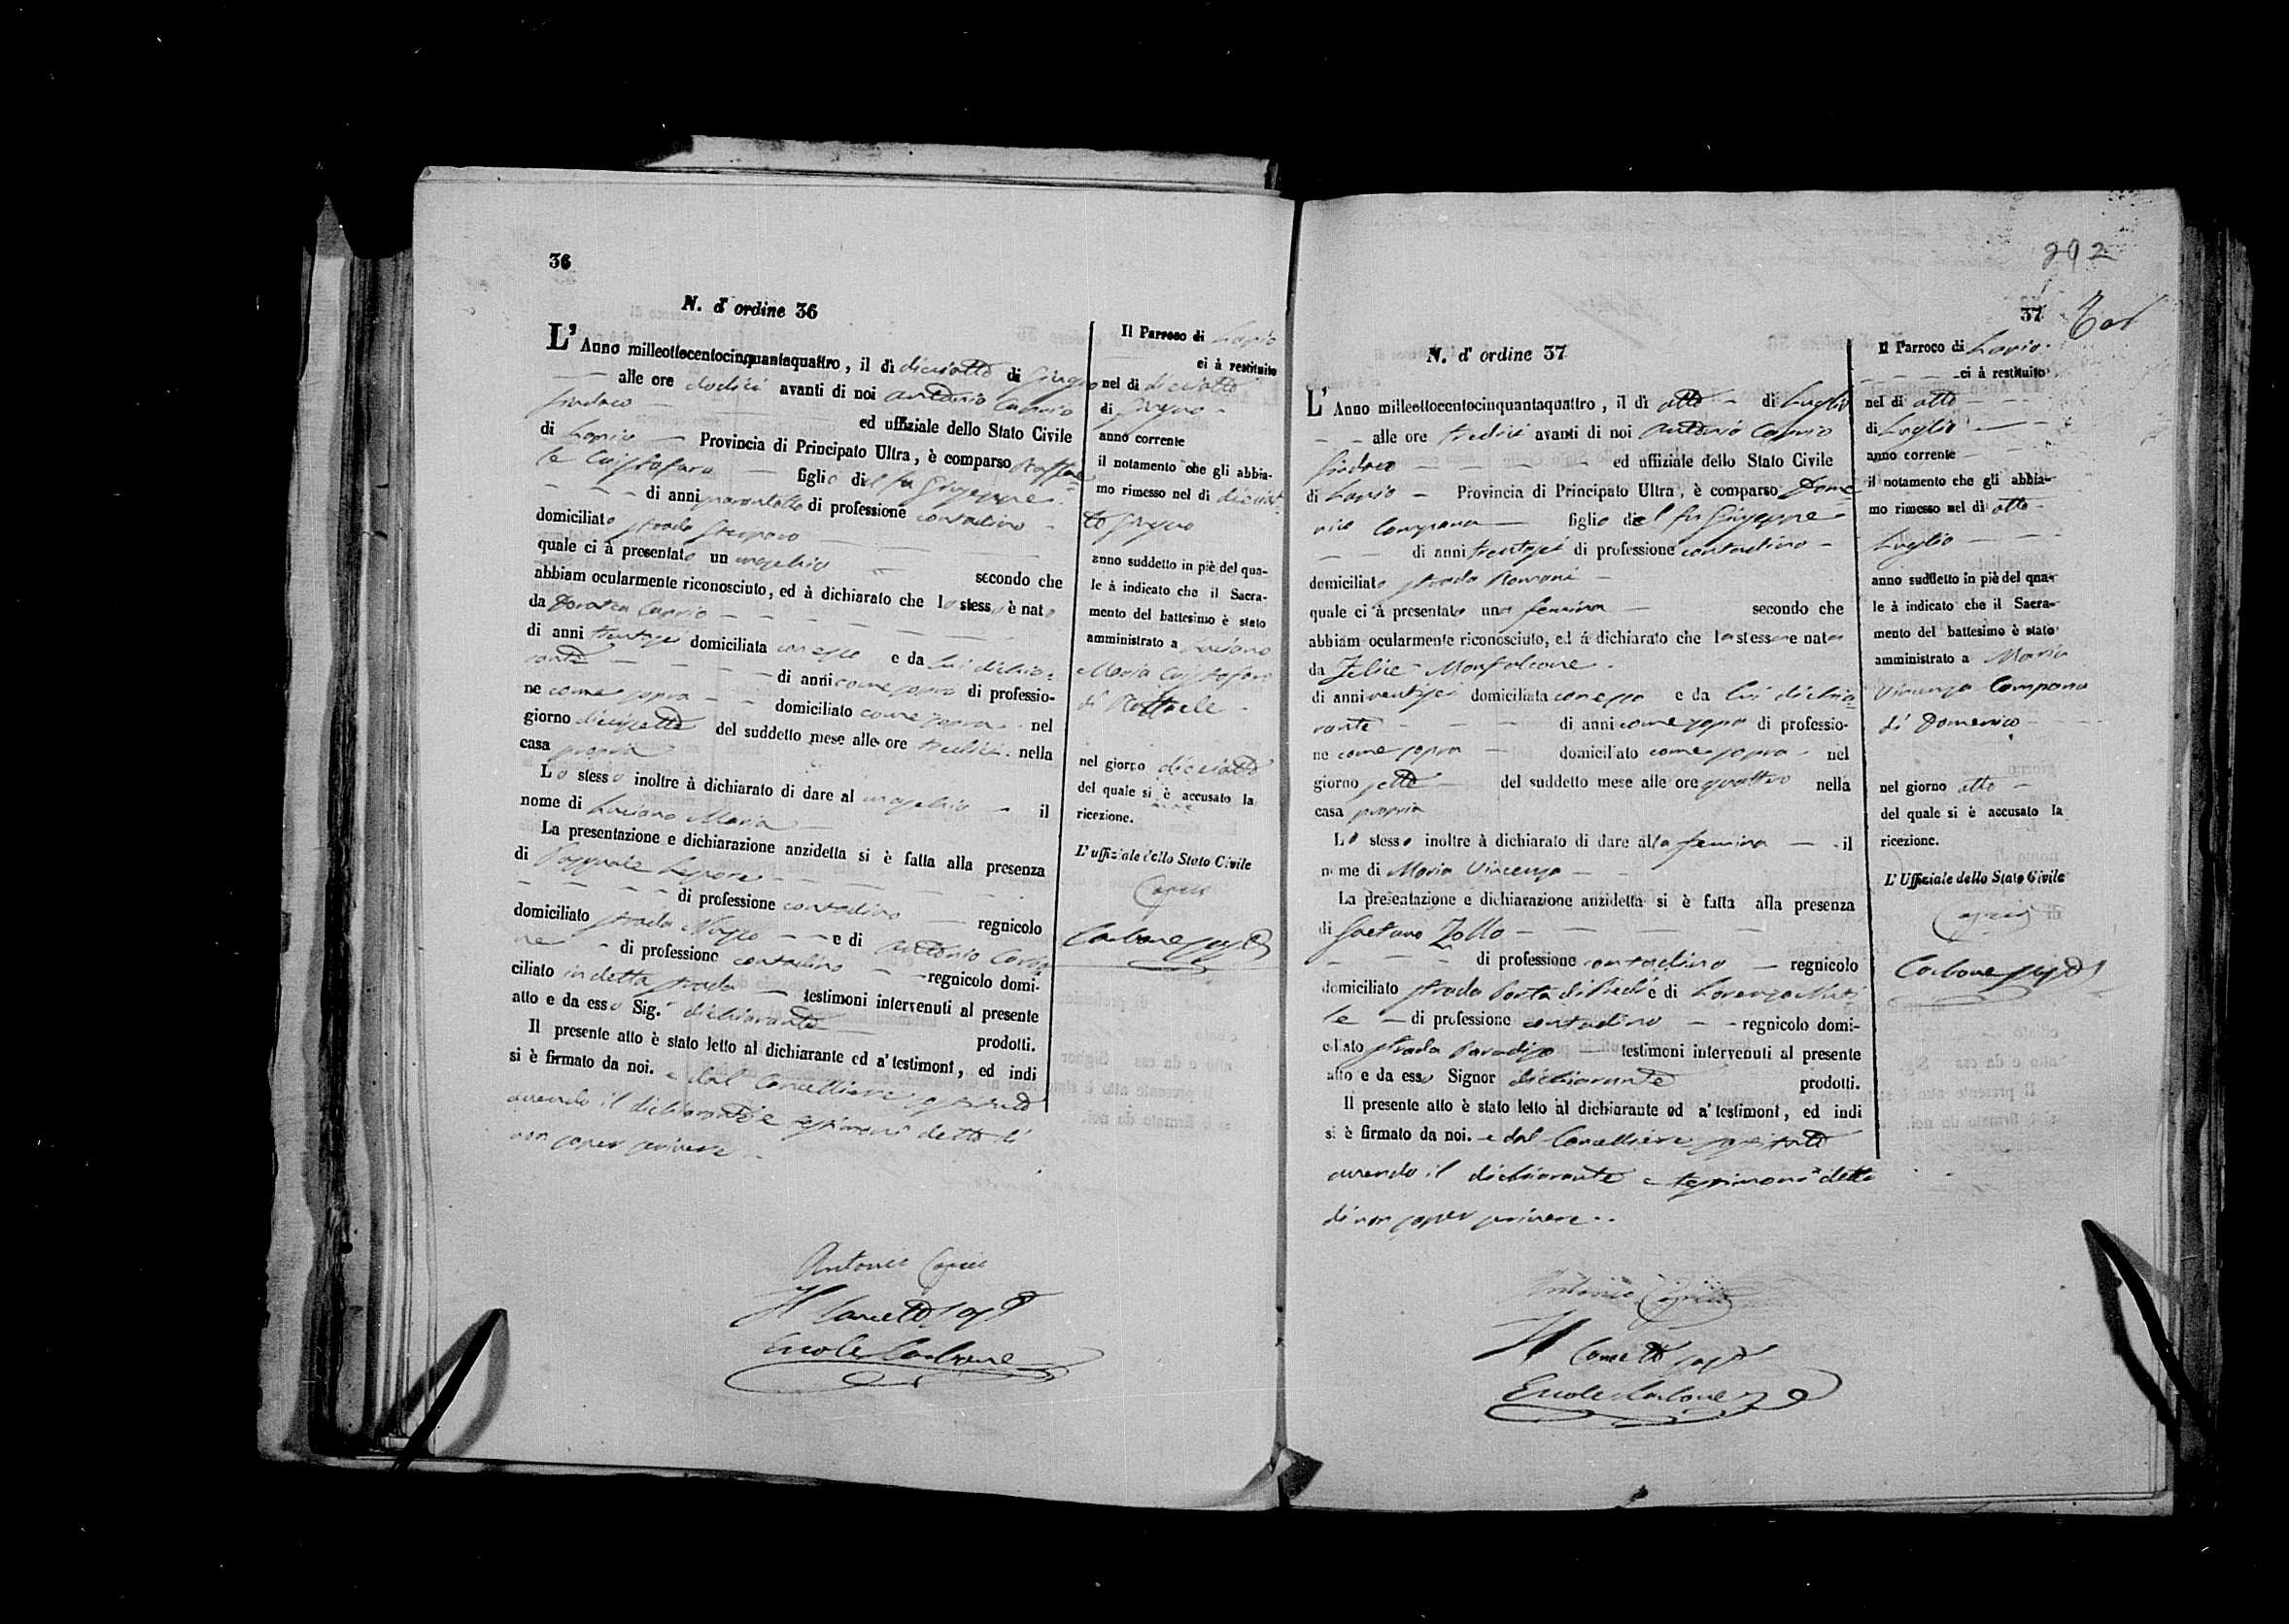 36
N. d' ordine 36
L' Anno milleottocentocinquantaquattro, il dì diciotto di Giugno
alle ore dodici avanti di noi Antonio Caprio
Sindaco ed uffiziale dello Stato Civile
di Lapio Provincia di Principato Ultra, è comparso Raffae=
le Cristofaro figlio del fu Giuseppe
di anni quarantotto di professione contadino
domiciliato strada
quale ci à presentato un maschio secondo che
abbiam ocularmente riconosciuto, ed à dichiarato che lo stesso è nato
da Dorotea Caprio
di anni trentasei domiciliata con esso e da lui dichia=
rante di anni come sopra di professio-
ne come sopra domiciliato come sopra nel
giorno diciasette del suddetto mese alle ore tredici nella
casa propria
Lo stesso inoltre à dichiarato di dare al maschio il
nome di Luciano Maria
La presentazione e dichiarazione anzidetta si è fatta alla presenza
di Pasquale Lepore
di professione contadino regnicolo
domiciliato strada e di Antonio Carbo
ne di professione contadino regnicolo domi-
ciliato in detta strada testimoni intervenuti al presente
atto e da esso Sig. dichiarante prodotti.
Il presente atto è stato letto al dichiarante ed a' testimonî, ed indi
si è firmato da noi. e dal Cancelliere sostituto
avendo il dichiarante e testimoni detto di
non saper scrivere
Antonio Caprio
Il Canc.
Ercole Carbone
Il Parroco di Lapio
ci à restituito
nel di diciotto
di Giugno
anno corrente
il notamento che gli abbia-
mo rimesso nel di diciot=
to Giugno
anno suddetto in piè del qua-
le à indicato che il Sacra-
mento del battesimo è stato
amministrato a Luciano
Maria Cristofaro
di Raffaele
nel giorno diciotto
del quale si è accusato la
ricezione.
L' uffiziale dello Stato Civile
Caprio
Carbone
292
37
N. d' ordine 37
L' Anno milleottocentocinquantaquattro, il dì otto di Luglio
alle ore tredici avanti di noi Antonio Caprio
Sindaco ed uffiziale dello Stato Civile
di Lapio Provincia di Principato Ultra, è comparso Dome
nico Campana figlio del fu Giuseppe
di anni trentasei di professione contadino
domiciliato strada Romani
quale ci à presentato una femina secondo che
abbiam ocularmente riconosciuto, ed à dichiarato che la stessa e nata
da Felice Monfalcone
di anni ventisei domiciliata con esso e da lui dichia=
rante di anni come sopra di professio-
ne come sopra domiciliato come sopra nel
giorno sette del suddetto mese alle ore quattro nella
casa propria
Lo stesso inoltre à dichiarato di dare alla femina il
nome di Maria Vincenza
La presentazione e dichiarazione anzidetta si è fatta alla presenza
di Gaetano Zollo
di professione contadino regnicolo
domiciliato strada Porta di Piedi e di Lorenzo
le di professione contadino regnicolo domi-
ciliato strada Paradiso testimoni intervenuti al presente
atto e da esso Signor dichiarante prodotti.
Il presente atto è stato letto al dichiarante ed a' testimonî, ed indi
si è firmato da noi. e dal Cancelliere sostituto
avendo il dichiarante e testimoni detto
di non saper scrivere
Antonio Caprio
Il Canc.
Ercole Carbone
Il Parroco di Lapio
ci à restituito
nel di otto
di Luglio
anno corrente
il notamento che gli abbia-
mo rimesso nel di otto
Luglio
anno suddetto in piè del qua-
le à indicato che il Sacra-
mento del battesimo è stato
amministrato a Maria
Vincenza Campana
di Domenico
nel giorno otto
del quale si è accusato la
ricezione.
L' Uffiziale dello Stato Civile
Caprio
Carbone